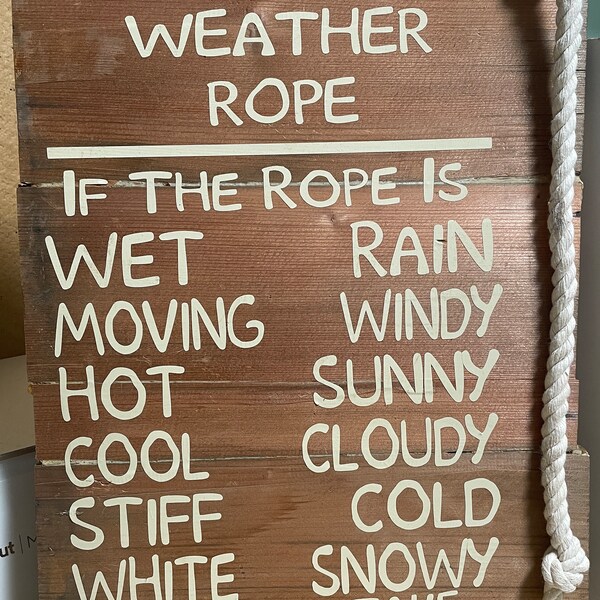 WEATHER
ROPE
IF THE ROPE IS
WET RAIN
MOVING WINDY
HOT SUNNY
COOL CLOUDY
STIFF COLD
WHITE SNOWY